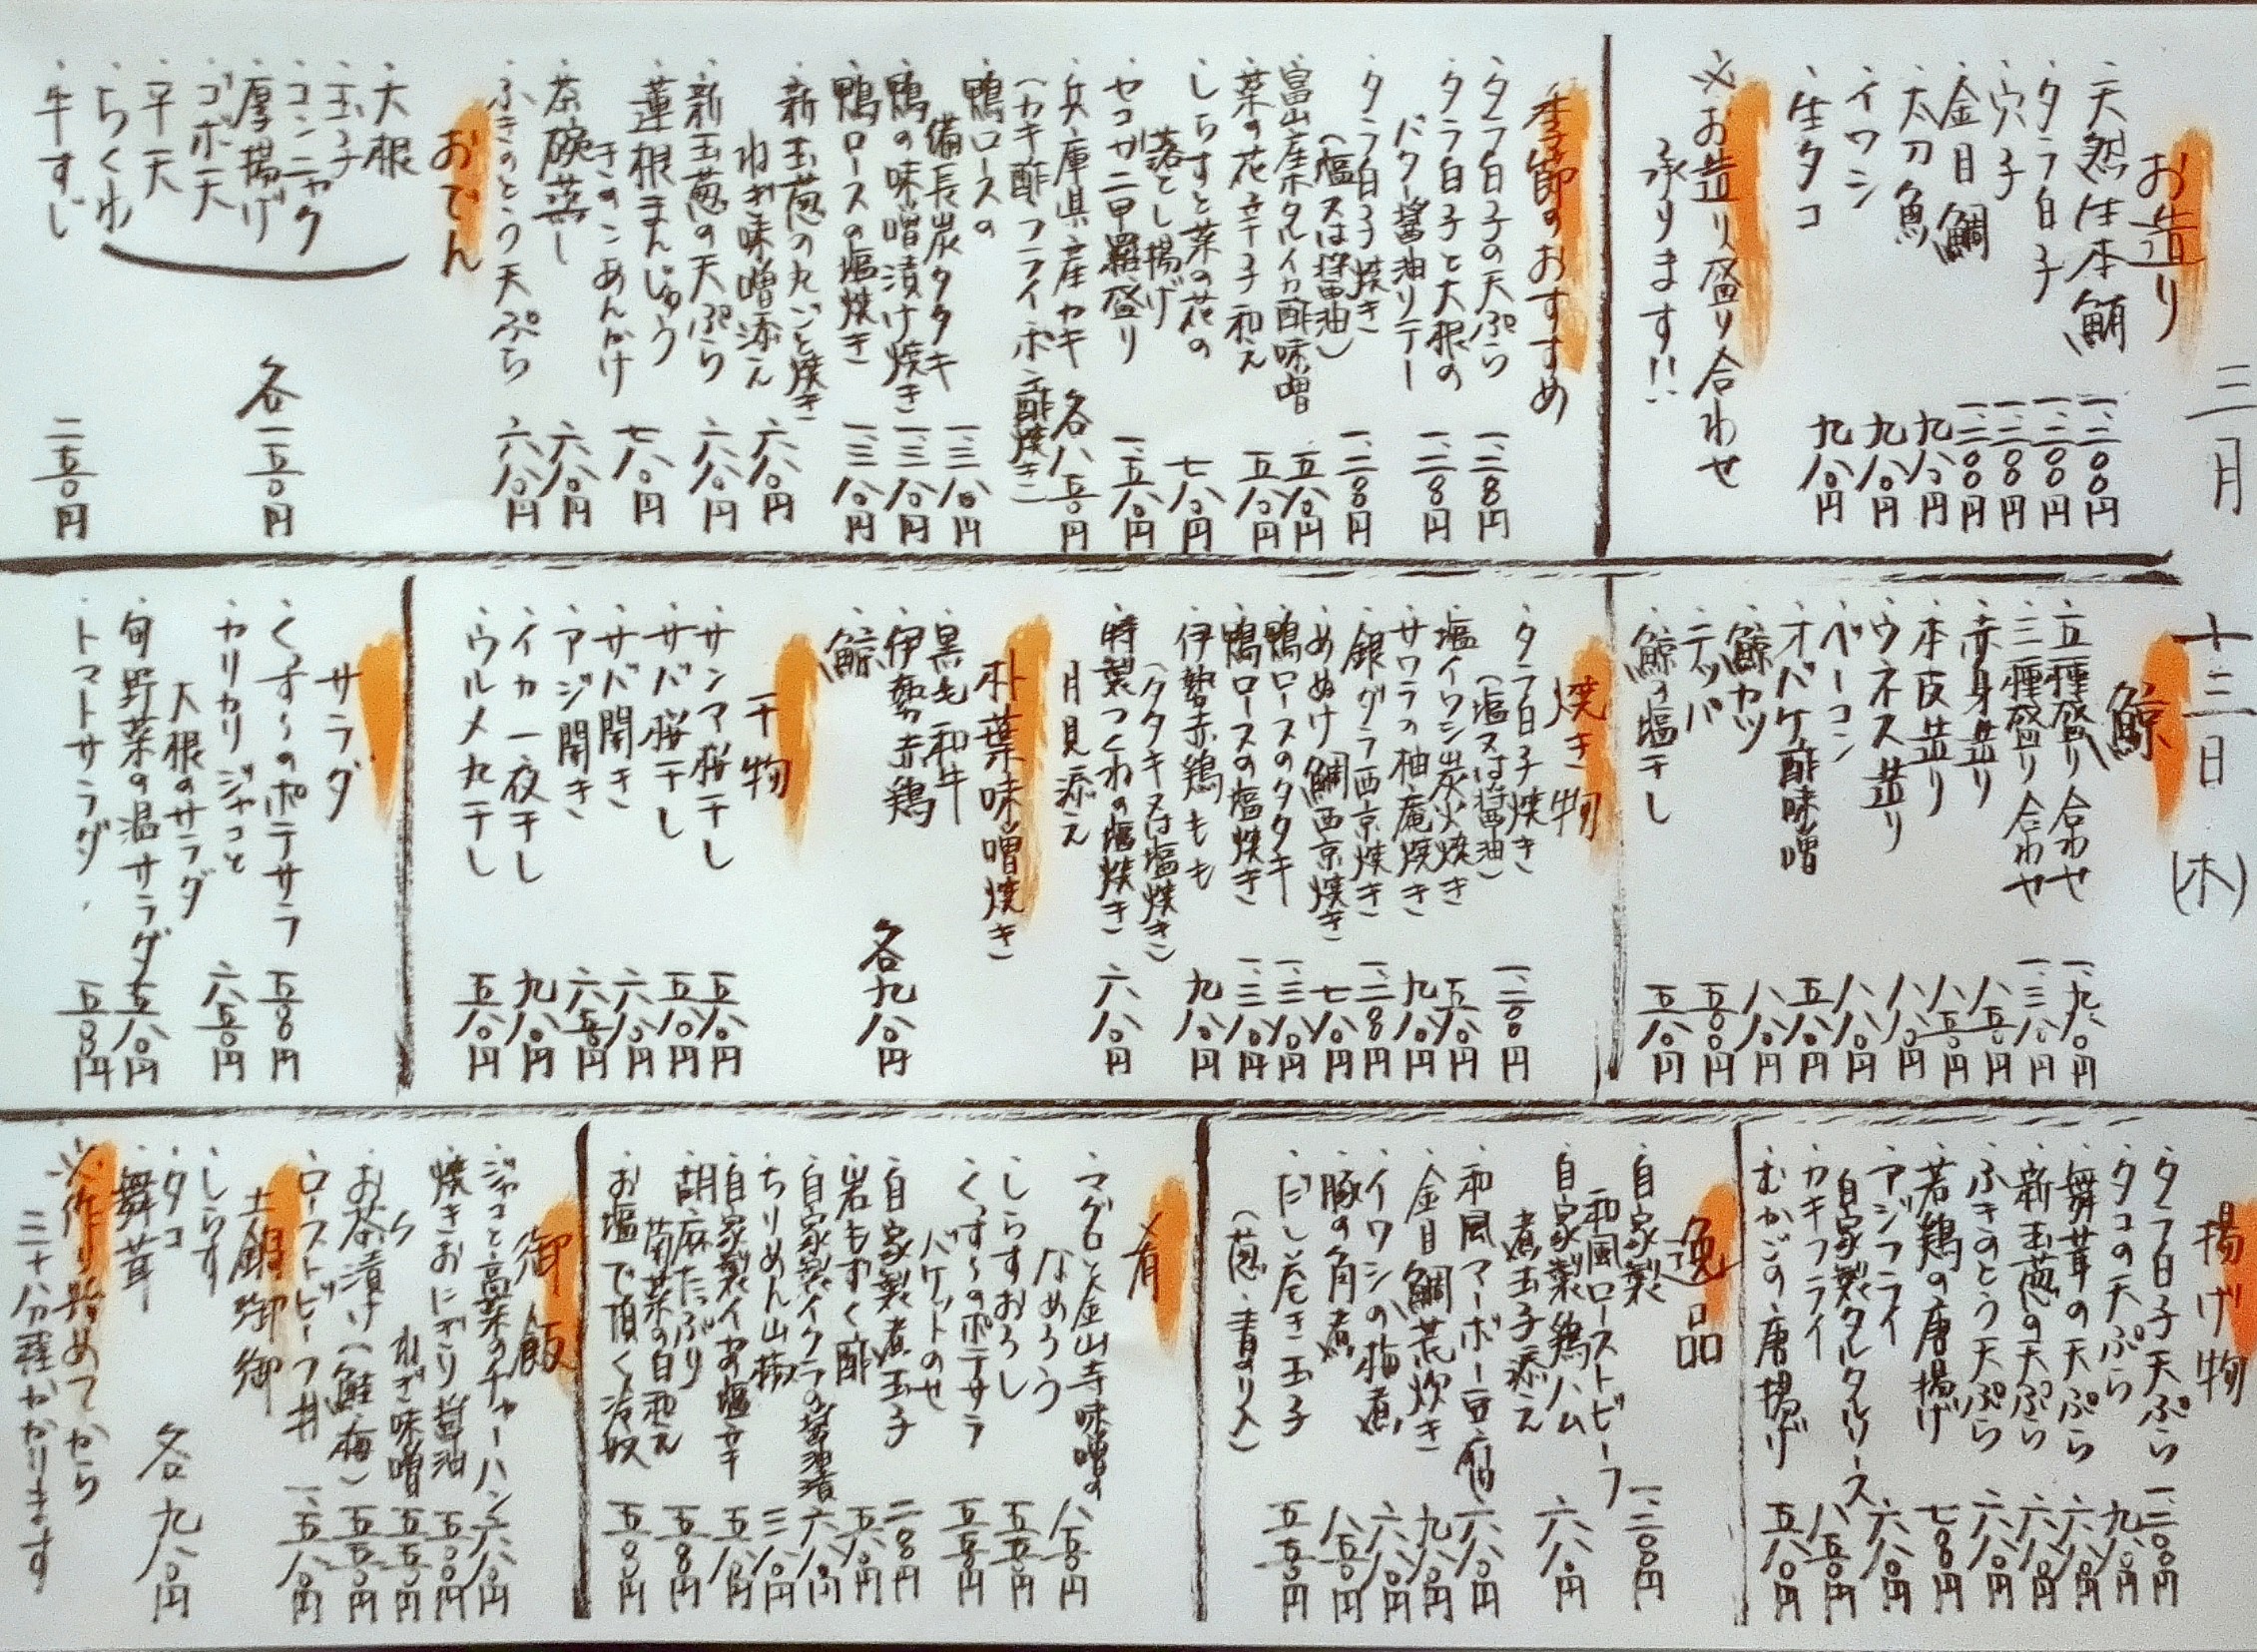 三月 十三日 (木)
お造り
・天然生本鮪 一、二〇〇円
・タラ白子 一、二〇〇円
・穴子 一、二〇〇円
・金目鯛 一、二〇〇円
・太刀魚 九八〇円
・イワシ 九八〇円
・生タコ 九八〇円
※お造り盛り合わせ
承ります!!
季節のおすすめ
・タラ白子の天ぷら 一、二〇〇円
・タラ白子と大根の
バター醤油ソテー 一、二〇〇円
・タラ白子焼き
(塩又は醤油) 一、二〇〇円
・富山産ホタルイカ酢味噌 五八〇円
・菜の花辛子和え 五八〇円
・しらすと菜の花の
落とし揚げ 七八〇円
・セコガニ甲羅盛り 一、五八〇円
・兵庫県産カキ 各八五〇円
(カキ酢・フライ・ポン酢焼き)
・鴨ロースの
備長炭タタキ 一、三八〇円
・鴨の味噌漬け焼き 一、三八〇円
・鴨ロースの塩焼き 一、三八〇円
・新玉葱の丸ごと焼き
ねぎ味噌添え 六八〇円
・新玉葱の天ぷら 六八〇円
・蓮根まんじゅう
きのこあんかけ 七八〇円
・茶碗蒸し 六八〇円
・ふきのとう天ぷら 六八〇円
おでん
・大根
・玉子
・コンニャク
・厚揚げ
・ゴボ天
・平天
・ちくわ
各一五〇円
・牛すじ 二五〇円
鯨
・五種盛り合わせ 一、九八〇円
・三種盛り合わせ 一、三八〇円
・赤身造り 八五〇円
・本皮造り 八五〇円
・ウネス造り 八八〇円
・ベーコン 八八〇円
・オバケ酢味噌 五八〇円
・鯨カツ 八八〇円
・テッパ 五〇〇円
・鯨の塩干し 五八〇円
焼き物
・タラ白子焼き
(塩又は醤油) 一、二〇〇円
・塩イワシ炭火焼き 五八〇円
・サワラの柚庵焼き 九八〇円
・銀ダラ西京焼き 一、二〇〇円
・めぬけ鯛西京焼き 七八〇円
・鴨ロースのタタキ 一、三八〇円
・鴨ロースの塩焼き 一、三八〇円
・伊勢赤鶏もも 九八〇円
(タタキ又は塩焼き)
・特製つくねの塩焼き 六八〇円
月見添え
朴葉味噌焼き
・黒毛和牛
・伊勢赤鶏
・鯨
各九八〇円
干物
・サンマ桜干し 五八〇円
・サバ桜干し 五八〇円
・サバ開き 六八〇円
・アジ開き 六五〇円
・イカ一夜干し 九八〇円
・ウルメ丸干し 五八〇円
サラダ
・くず〜のポテサラ 五五〇円
・カリカリジャコと
大根のサラダ 六五〇円
・旬野菜の温サラダ 五八〇円
・トマトサラダ 五五〇円
揚げ物
・タラ白子天ぷら 一、二〇〇円
・タコの天ぷら 九八〇円
・舞茸の天ぷら 六八〇円
・新玉葱の天ぷら 六八〇円
・ふきのとう天ぷら 六八〇円
・若鶏の唐揚げ 七五〇円
・アジフライ
自家製タルタルソース 六八〇円
・カキフライ 八五〇円
・むかごの唐揚げ 五八〇円
逸品
・自家製
和風ローストビーフ 一、二〇〇円
・自家製鶏ハム
煮玉子添え 六八〇円
・和風マーボー豆腐 六八〇円
・金目鯛荒炊き 九八〇円
・イワシの梅煮 六八〇円
・豚の角煮 八五〇円
・だし巻き玉子 五五〇円
(葱・青のり入)
肴
・マグロと金山寺味噌の
なめろう 八五〇円
・しらすおろし 五五〇円
・くず〜のポテサラ
バケットのせ 五五〇円
・自家製煮玉子 二〇〇円
・岩もずく酢 五八〇円
・自家製イクラの醤油漬 六八〇円
・ちりめん山椒 三八〇円
・自家製イカの塩辛 五八〇円
・胡麻たっぷり
菊菜の白和え 五五〇円
・お塩で頂く冷奴 五五〇円
御飯
・ジャコと高菜のチャーハン 六八〇円
・焼きおにぎり醤油 五〇〇円
・〃 ねぎ味噌 五五〇円
・お茶漬け(鮭・梅) 五五〇円
・ローストビーフ丼 一、五八〇円
土鍋御飯
・しらす
・タコ
・舞茸
各九八〇円
※作り始めてから
三十分程かかります